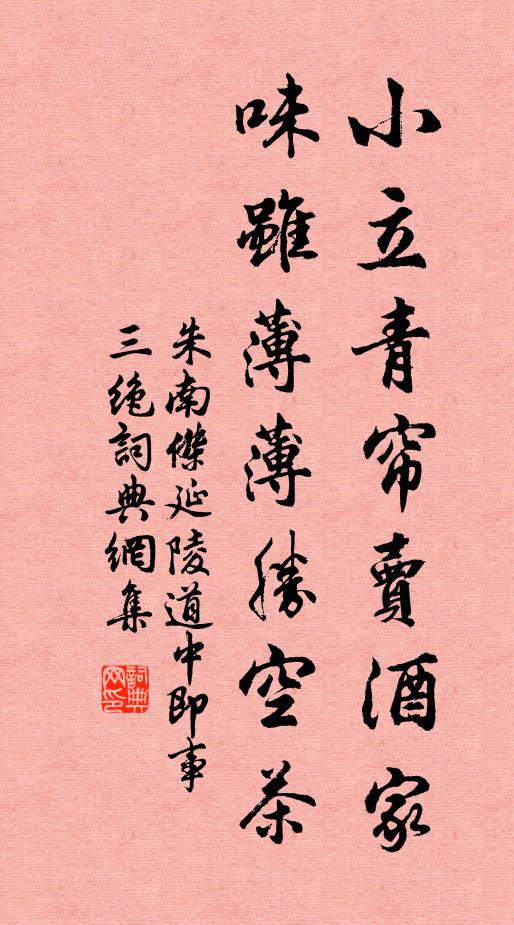 小立青帘賣酒家
味雖薄薄勝空茶
朱南傑延陵道中即事
三絶詞典網集
詞典
网印